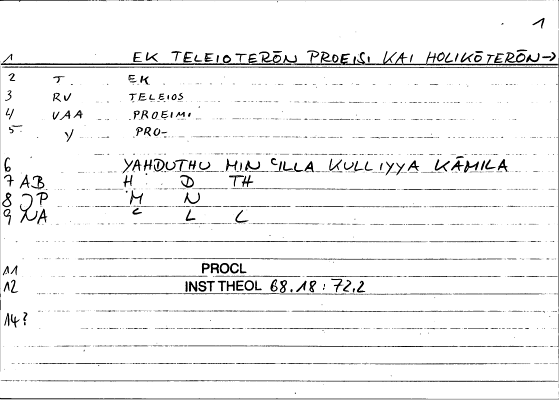 1
1 EK TELEIOTERŌN PROEISI KAI HOLIKŌTERŌN→
2 T EK
3 RV TELEIOS
4 VAA PROEIMI
5 Y PRO-
6 YAHDUTHU MIN ʿILLA KULLIYYA KĀMILA
7 AB H D TH
8 P M N
9 NA ʿ L L
11 PROCL
12 INST THEOL 68.18 : 72,2
14?